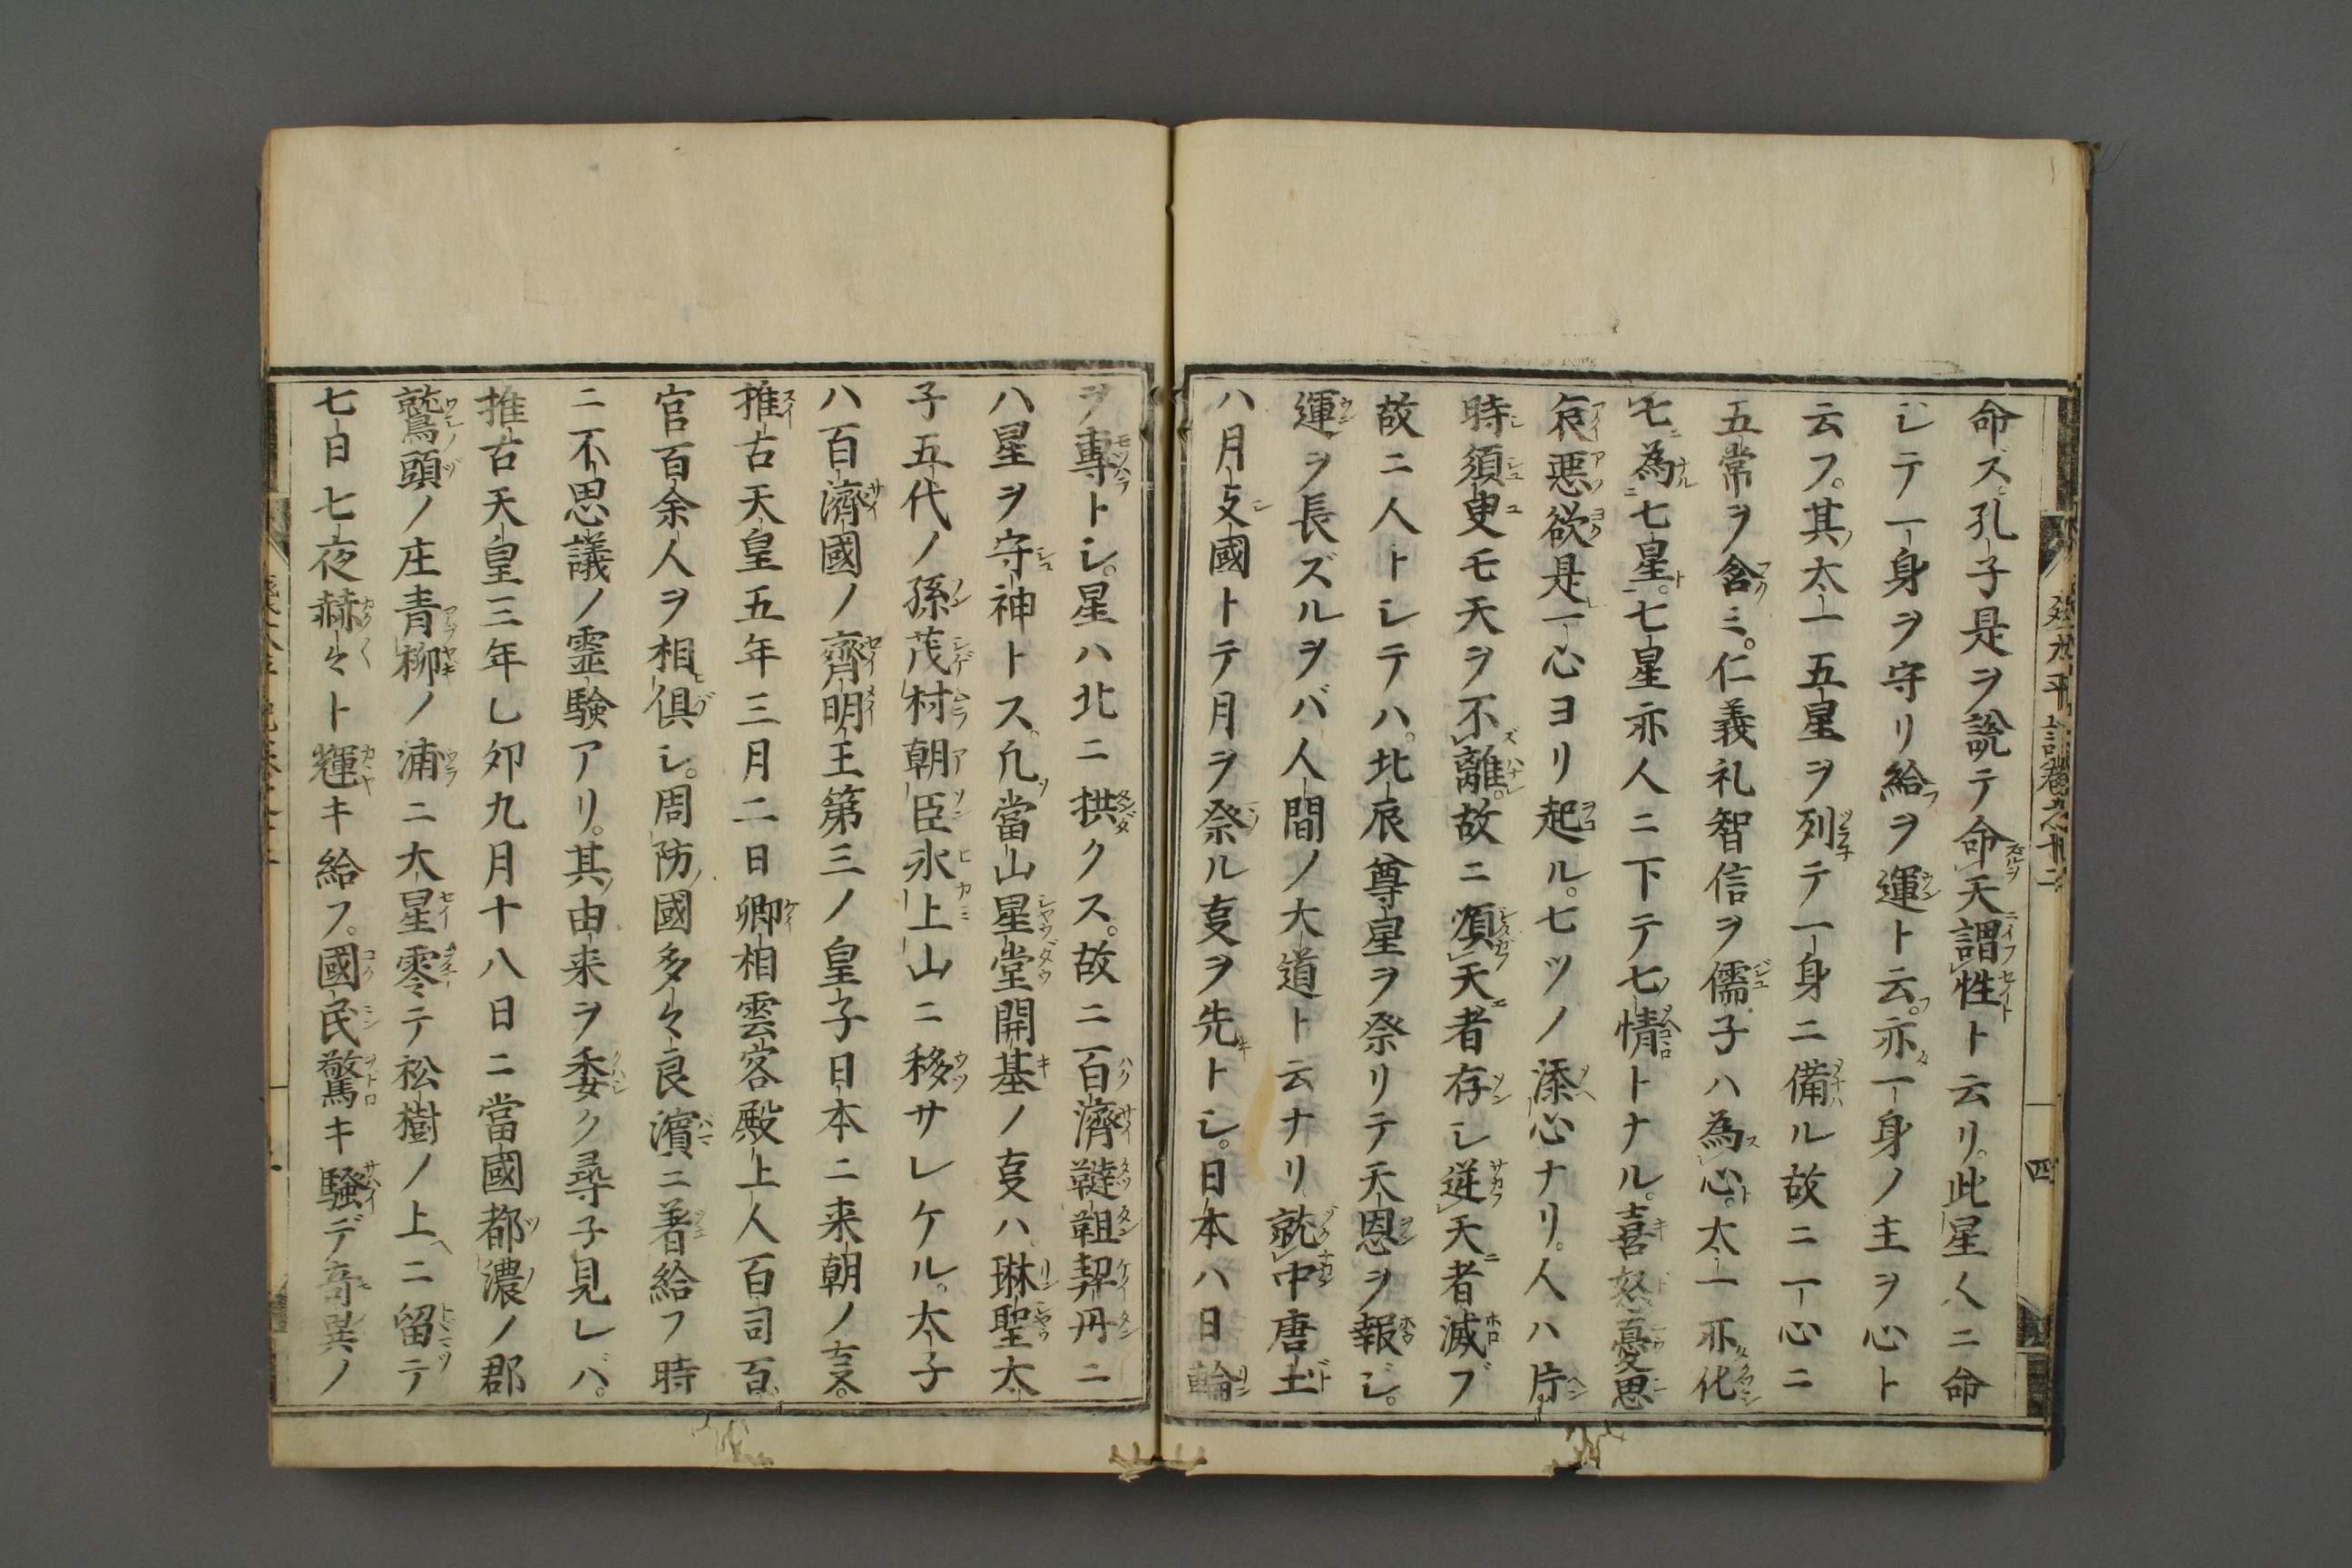 命ズ。孔子是ヲ說テ命天謂性ト云リ。此星人ニ命
シテ一身ヲ守リ給ヲ運ト云。亦一身ノ主ヲ心ト
云フ。其太一五星ヲ列テ一身ニ備ル故ニ一心ニ
五常ヲ含ミ。仁義礼智信ヲ儒子ハ為心。太一亦化
七為七星。七星亦人ニ下テ七情トナル。喜怒憂思
哀惡欲是一心ヨリ起ル。七ツノ添心ナリ。人ハ片
時須臾モ天ヲ不離。故ニ順天者存シ逆天者滅ブ
故ニ人トシテハ。北辰尊星ヲ祭リテ天恩ヲ報ジ。
運ヲ長ズルヲバ人間ノ大道ト云ナリ就中唐土
八月支國トテ月ヲ祭ル㕝ヲ先トシ。日本ハ日輪
ヲ專トシ。星ハ北ニ拱クス。故ニ百濟韃靼契丹ニ
八星ヲ守神トス。凢當山星堂開基ノ㕝ハ琳聖太
子五代ノ孫茂村朝臣氷上山ニ移サレケル。太子
八百濟國ノ齊明王第三ノ皇子日本ニ来朝ノ㕝。
推古天皇五年三月二日卿相雲客殿上人百司百
官百余人ヲ相俱シ。周防國多々良濱ニ著給フ時
ニ不思議ノ霊驗アリ。其由来ヲ委ク尋子見レバ。
推古天皇三年乚夘九月十八日ニ當國都濃ノ郡
鷲頭ノ庄青柳ノ浦ニ大星零テ松樹ノ上ニ留テ
七日七夜赫々ト輝キ給フ。國民驚キ騒デ奇異ノ
四